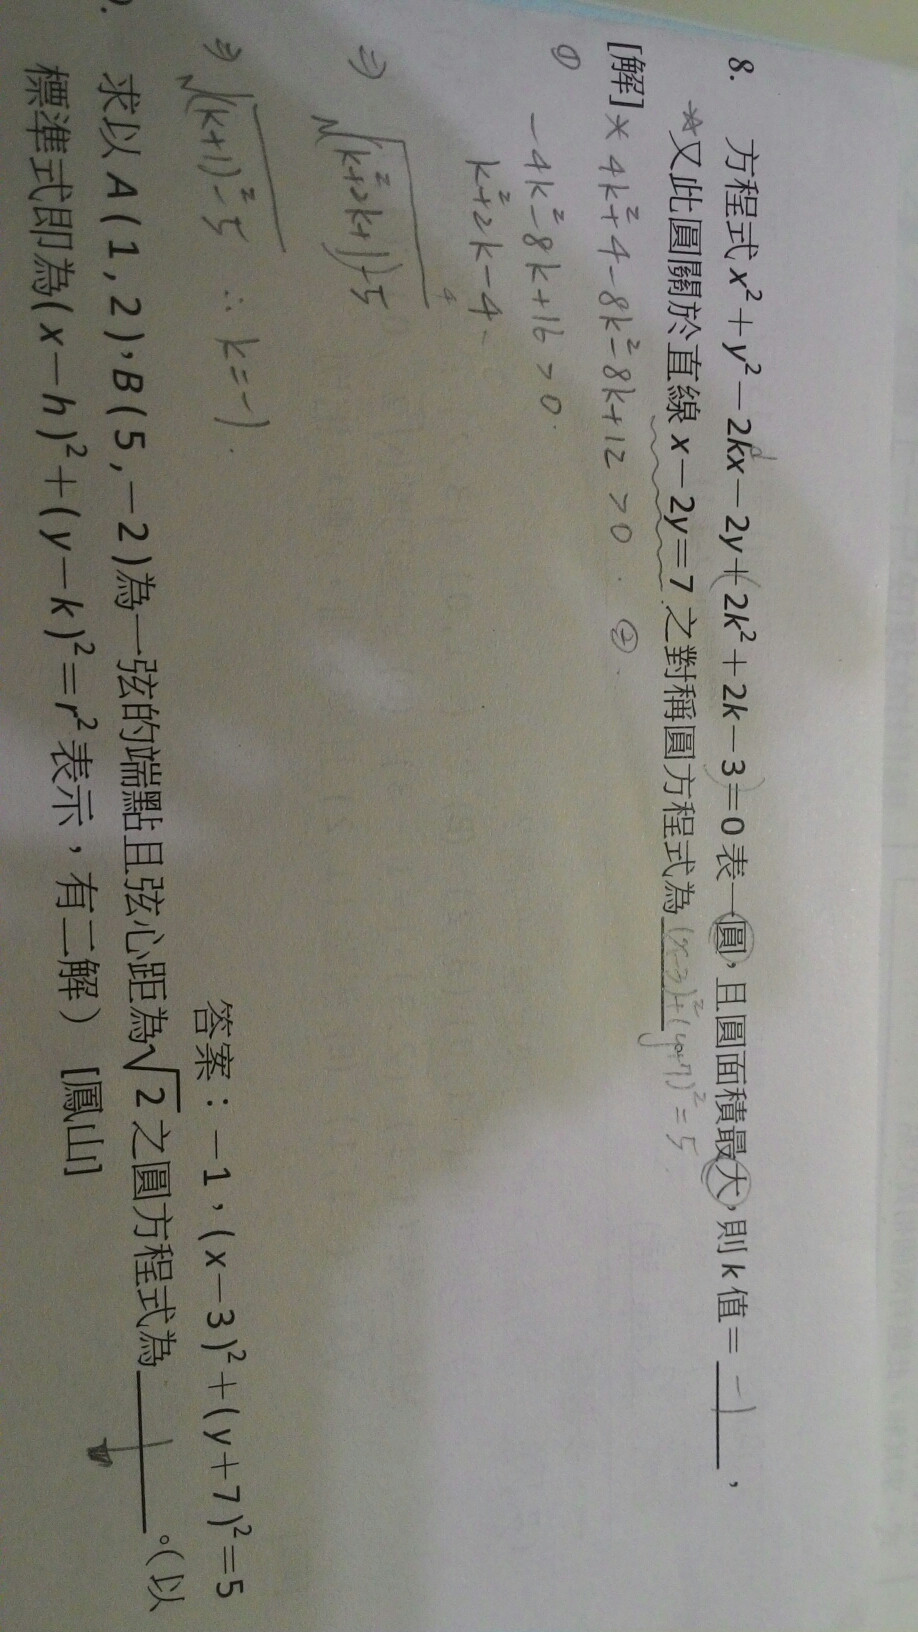 8. 方程式 x²+y²-2kx-2y+(2k²+2k-3)=0 表一圓，且圓面積最大，則 k 值=-1，
☆又此圓關於直線 x-2y=7 之對稱圓方程式為(x-3)²+(y+7)²=5
[解]* 4k²+4-8k²-8k+12>0. ②.
① -4k²-8k+16>0.
k²+2k-4.
⇒ √(k²+2k+1)-5
⇒ √(k+1)²-5 ∴ k=-1.
答案：-1，(x-3)²+(y+7)²=5
求以 A(1,2)，B(5,-2)為一弦的端點且弦心距為√2 之圓方程式為。(以
標準式即為(x-h)²+(y-k)²=r²表示，有二解) [鳳山]